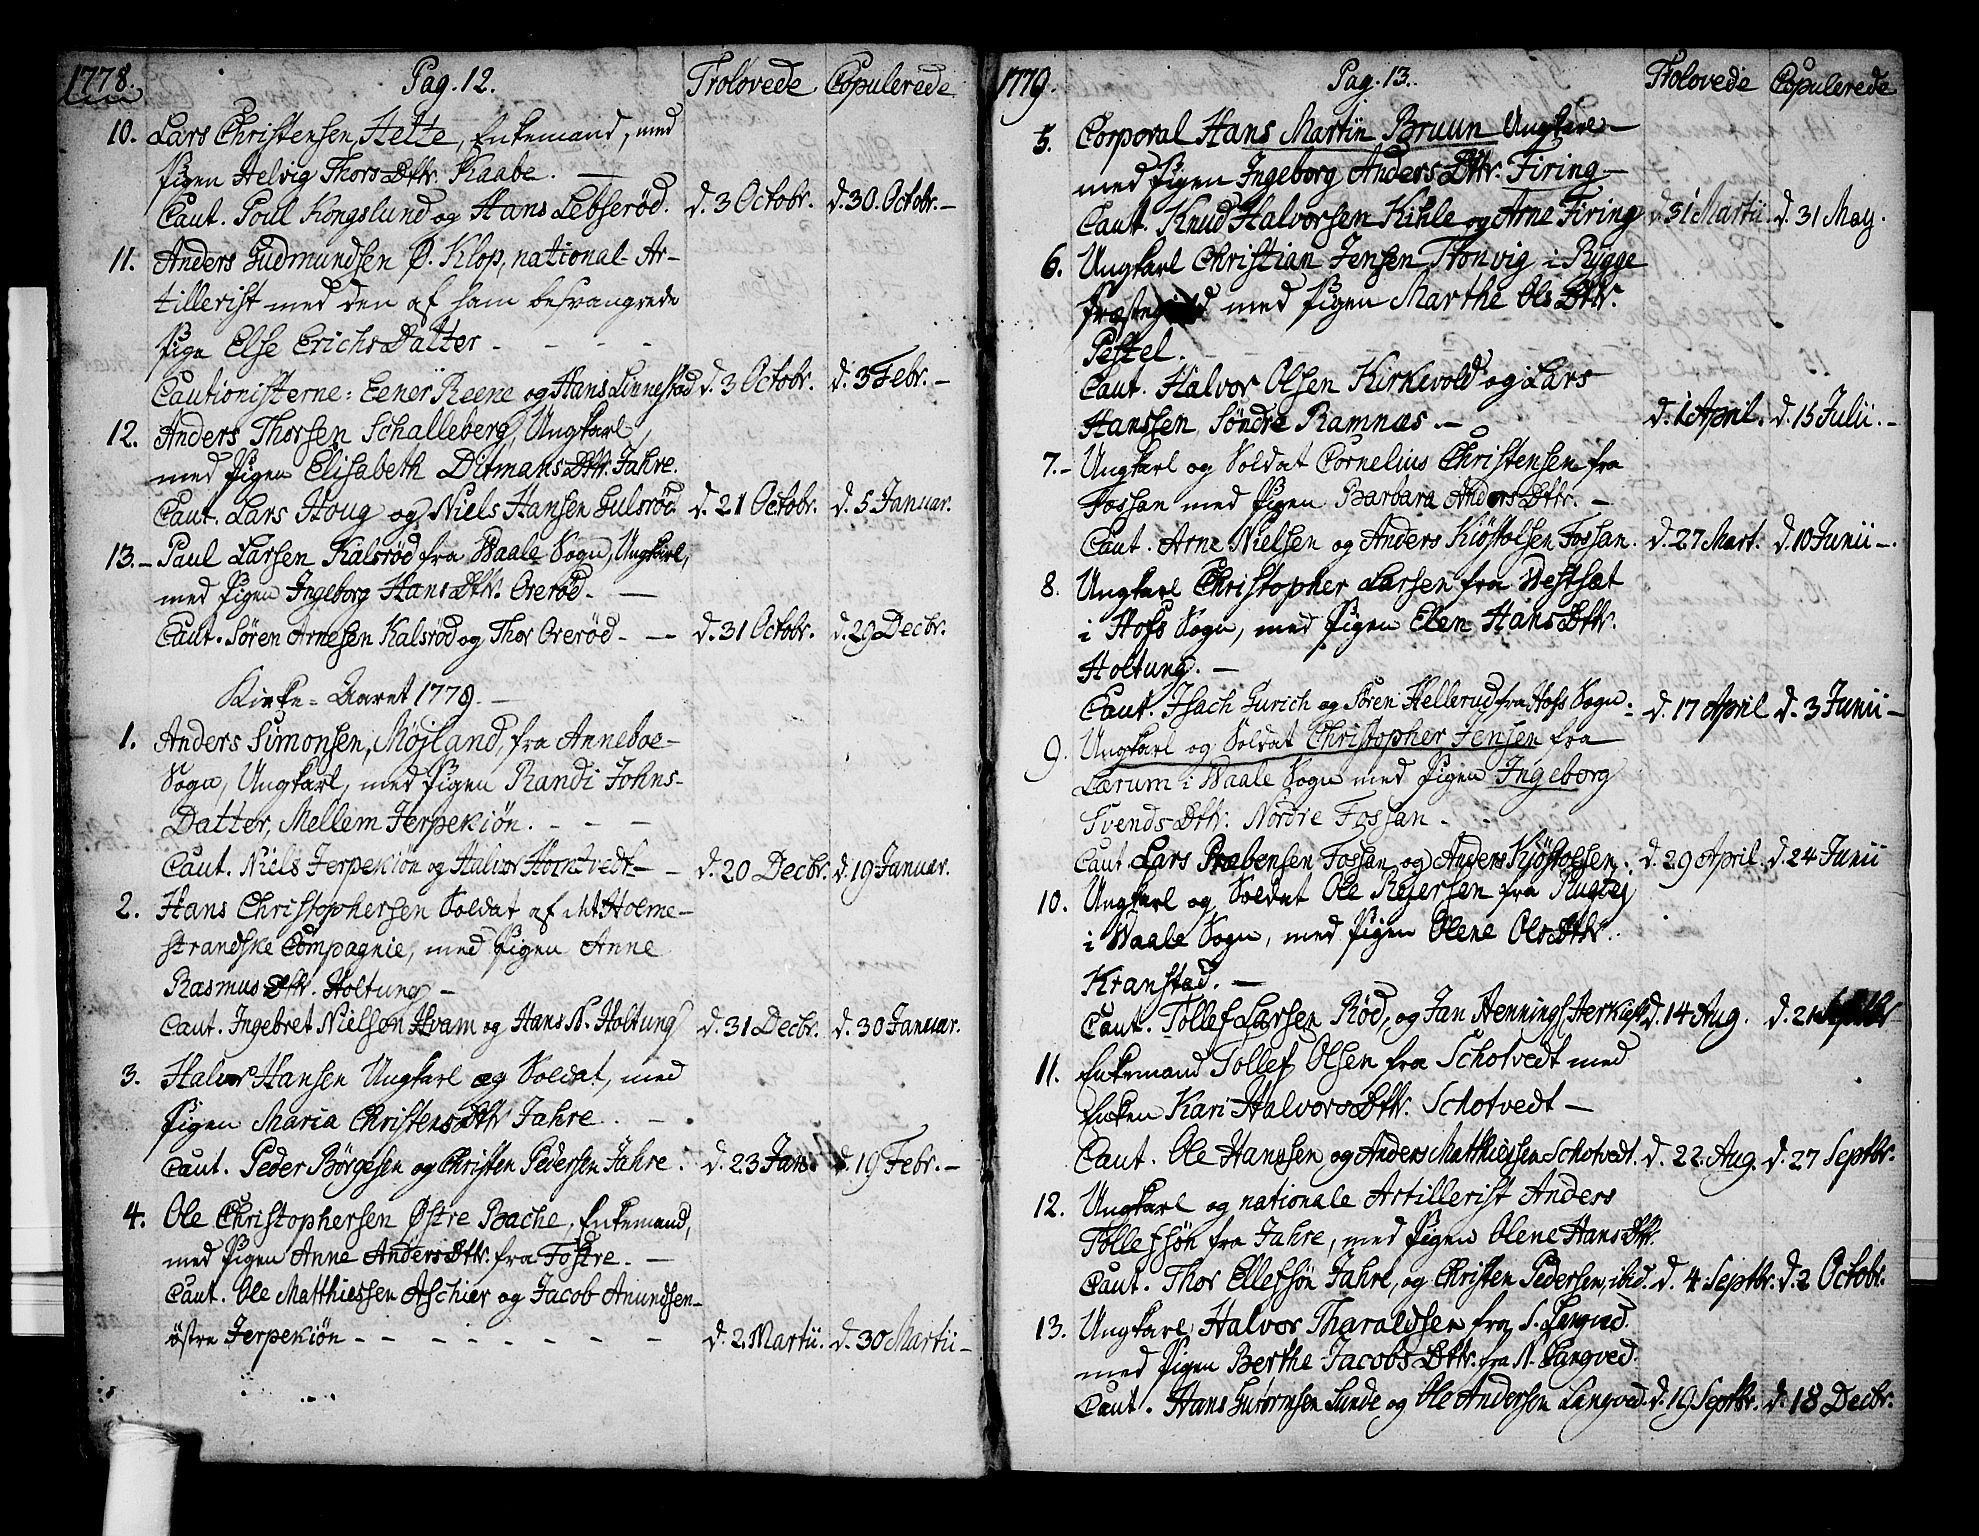 1778. Pag. 12. Trolovede Copulerede
10. Lars Christensen Hette, Enkemand, med
Pigen Helvig Thors Dttr. Kaabe. —
Caut. Poul Kongslund og Hans Lebserød. d. 3 Octobr. d. 30. Octobr. —
11. Anders Gudmundsen Ø. Klop, national-Ar-
tillerist med den af ham besvangrede
Pige Else Erichs Datter - - - -
Cautionisterne: Eener Reene og Hans Linnestad d. 3 Octobr. d. 3 Febr. —
12. Anders Thorsen Schalleberg, Ungkarl,
med Pigen Elisabeth Ditmans Dttr. Jahre.
Caut. Lars Houg og Niels Hansen Gulsrød d. 21 Octobr. d. 5. Januar.
13. — Paul Larsen Kalsrød fra Waale Sogn, Ungkarl,
med Pigen Ingeborg Hans Dttr. Orerød. —
Caut. Søren Arnesen Kalsrød og Thor Orerød. — d. 31 Octobr. d. 29 Decbr.
Kirke-Aaret 1779. —
1. Anders Simonsen, Møjland, fra Anneboe-
Sogn, Ungkarl, med Pigen Randi Johns-
Datter, Mellem Jerpekiøn. - - -
Caut. Niels Jerpekiøn og Halvor Horntvedt — d. 20 Decbr. d. 19 Januar.
2. Hans Christophersen Soldat af det Holme-
strandske Compagnie, med Pigen Anne
Rasmus Dttr. Holtung —
Caut. Ingebret Nielsen Hvam og Hans N. Holtung d. 31 Decbr. d. 30 Januar.
3. Halvor Hansen Ungkarl og Soldat, med
Pigen Maria Christens Dttr Jahre. —
Caut. Peder Børgesen og Christen Pedersen Jahre. d. 23 Jan. d. 19 Febr. —
4. Ole Christophersen Østre Bache, Enkemand,
med Pigen Anne Anders Dttr. fra Tostre. —
Caut. Ole Matthiessen Aschier og Jacob Anundsen
østre Jerpekiøn - - - - - - - d. 2. Martii. d. 30 Martii —
1779. Pag. 13. Trolovede Copulerede
5. Corporal Hans Martin Bruun Ungkarl —
med Pigen Ingeborg Anders Dttr. Firing —
Caut. Knud Halvorsen Kihle og Arne Firing d. 31 Martii. d. 31 May.
6. Ungkarl Christian Jensen Tronvig i Rygge
Præstegield med Pigen Marthe Ols Dttr.
Pestel.
Caut. Halvor Olsen Kirkevold og Lars
Hanssen Søndre Ramnæs. — d. 1 April. d. 15 Julii. —
7. — Ungkarl og Soldat Cornelius Christensen fra
Fossan med Pigen Barbara Anders Dttr. —
Caut. Arne Nielsen og Anders Kiøstolsen Fossan. d. 27 Mart. d. 10 Junii —.
8. Ungkarl Christopher Larsen fra Westsæt
i Hofs Sogn, med Pigen Elen Hans Dttr.
Holtung. —
Caut. Isach Gurich og Søren Hellerud fra Hofs Sogn. d. 17 April d. 3 Junii —
9. Ungkarl og Soldat Christopher Jensen fra
Lærum i Waale Sogn med Pigen Ingeborg
Svends Dttr. Nordre Fossan - -
Caut Lars Prebensen Fossan og Anders Kjøstolsen. d. 29 April. d. 24 Junii
10. Ungkarl og Soldat Ole Rejersen fra
i Waale Sogn, med Pigen Olene Ols Dttr.
Kranstad. —
Caut. Tollef Larsen Rød, og Jan Hennings d. 14 Aug. d. 21
11. Enkemand Tollef Olsen fra Schotvedt med
Enken Kari Halvors Dttr. Schotvedt —
Caut. Ole Hanssen og Anders Matthiessen Schotvedt. d. 22. Aug. d. 27 Septbr.
12. Ungkarl og nationale Artillerist Anders
Tollefsøn fra Jahre, med Pigen Olene Hans Dttr.
Caut. Thor Ellefsøn Jahre, og Christen Pedersen, ibid. d. 4 Septbr. d. 2 Octobr.
13. Ungkarl Halvor Tharaldsen fra S. Langved.
med Pigen Berthe Jacobs Dttr. fra N. Langved.
Caut. Hans Gutormsen Lunde og Ole Andersen Langved. d. 19 Septbr. d. 18 Decbr.